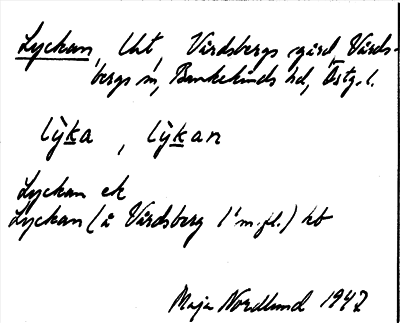 Lyckan, lht, Vårdsbergs gård, Vårds-
bergs sn, Bankekinds hd, Östg. l.
lỳka, lỳkan
Lyckan ek
Lyckan (å Vårdsberg 1¹ m.fl.) hb
Maja Nordlund 1947